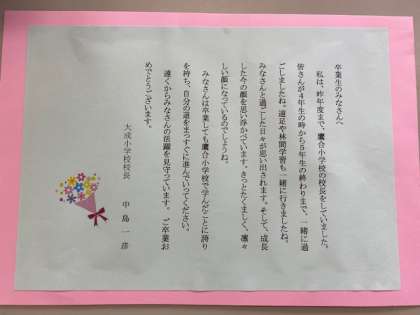 卒業生のみなさんへ
私は、昨年度まで、鷹合小学校の校長をしていました。
皆さんが４年生の時から５年生の終わりまで、一緒に過
ごしましたね。遠足や林間学習も一緒に行きましたね。
みなさんと過ごした日々が思い出されます。そして、成長
した今の顔を思い浮かべています。きっとたくましく、凛々
しい顔になっているのでしょうね。
みなさんは卒業しても鷹合小学校で学んだことに誇り
を持ち、自分の道をまっすぐに進んでいってください。
遠くからみなさんの活躍を見守っています。ご卒業お
めでとうございます。
大成小学校校長　中島　一彦